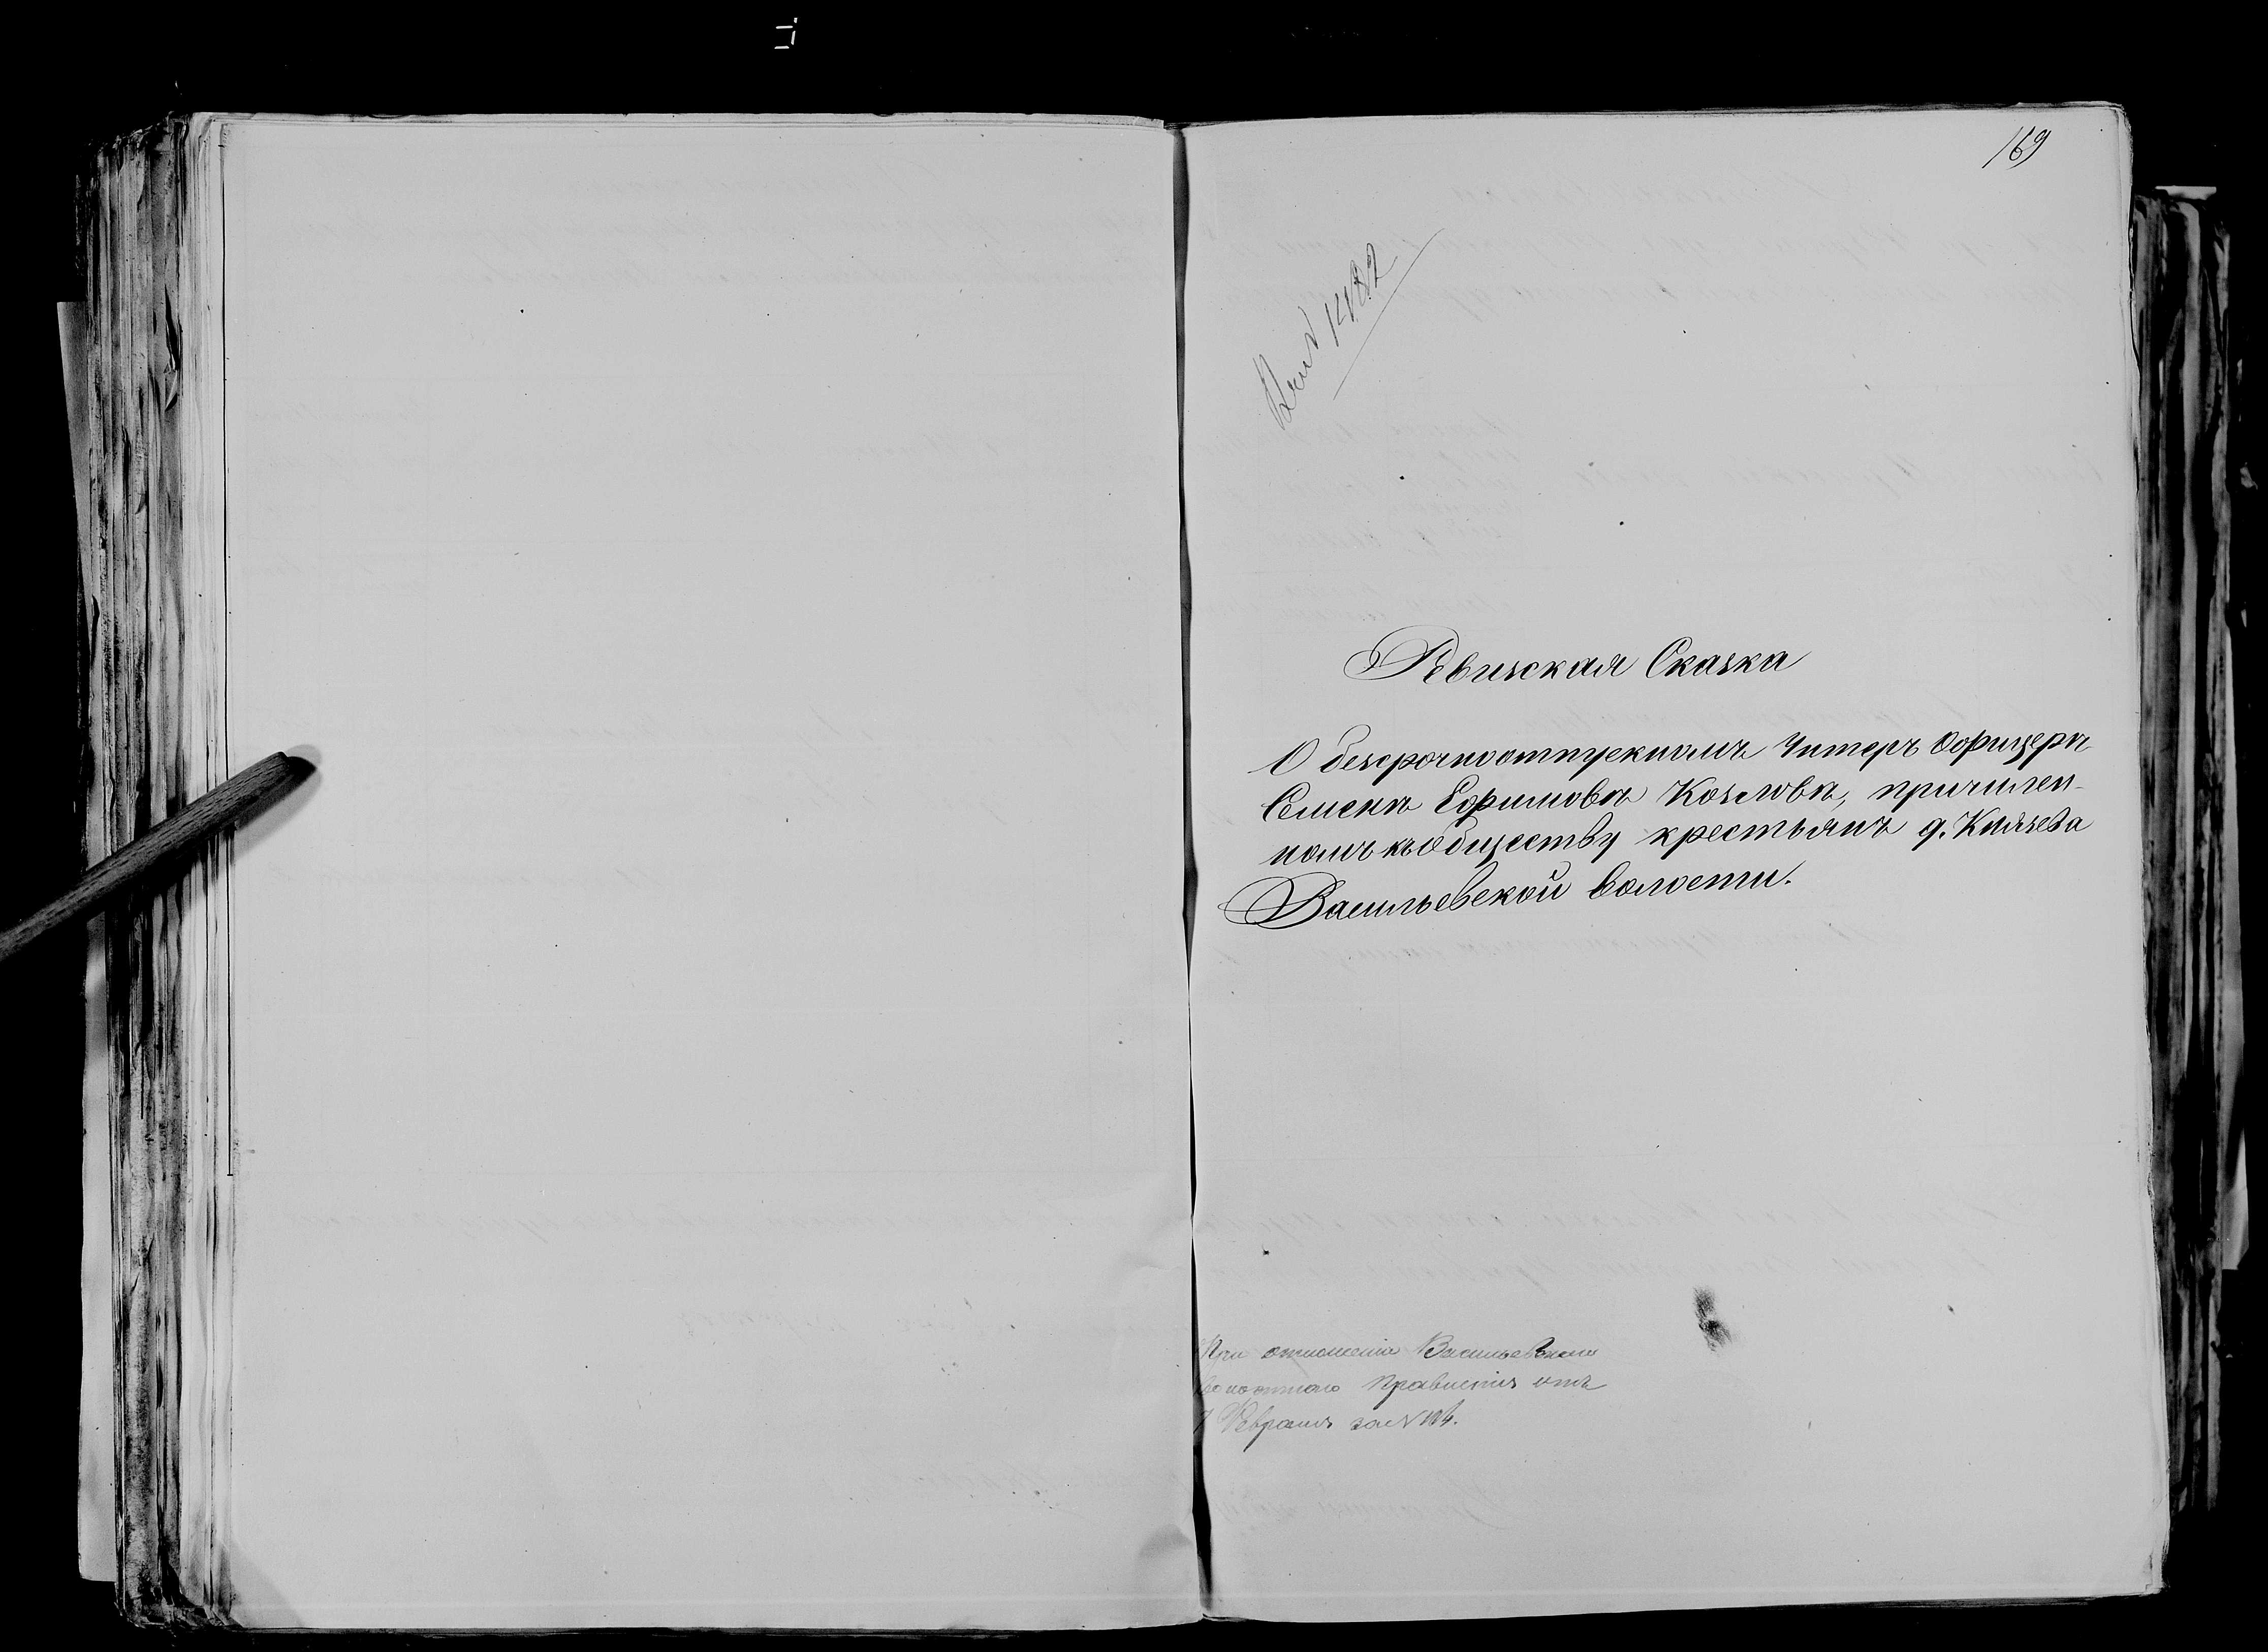 169
№ 1482
Ревизская Сказка
О безсрочноотпускномъ Унтеръ Офицерѣ
Семенѣ Ефимовѣ Козловѣ, причислен-
номъ къ обществу крестьянъ д. Князева
Васильевской волости.
При отношеніи Васильевскаго
волостнаго Правленія отъ
7 Февраля за №